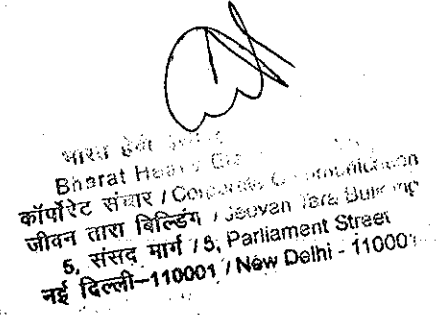 भारत हेवी
Bharat Heavy
कॉर्पोरेट संचार / Corporate Communication
जीवन तारा बिल्डिंग / Jeevan Tara Building
5, संसद मार्ग / 5, Parliament Street
नई दिल्ली-110001 / New Delhi - 110001